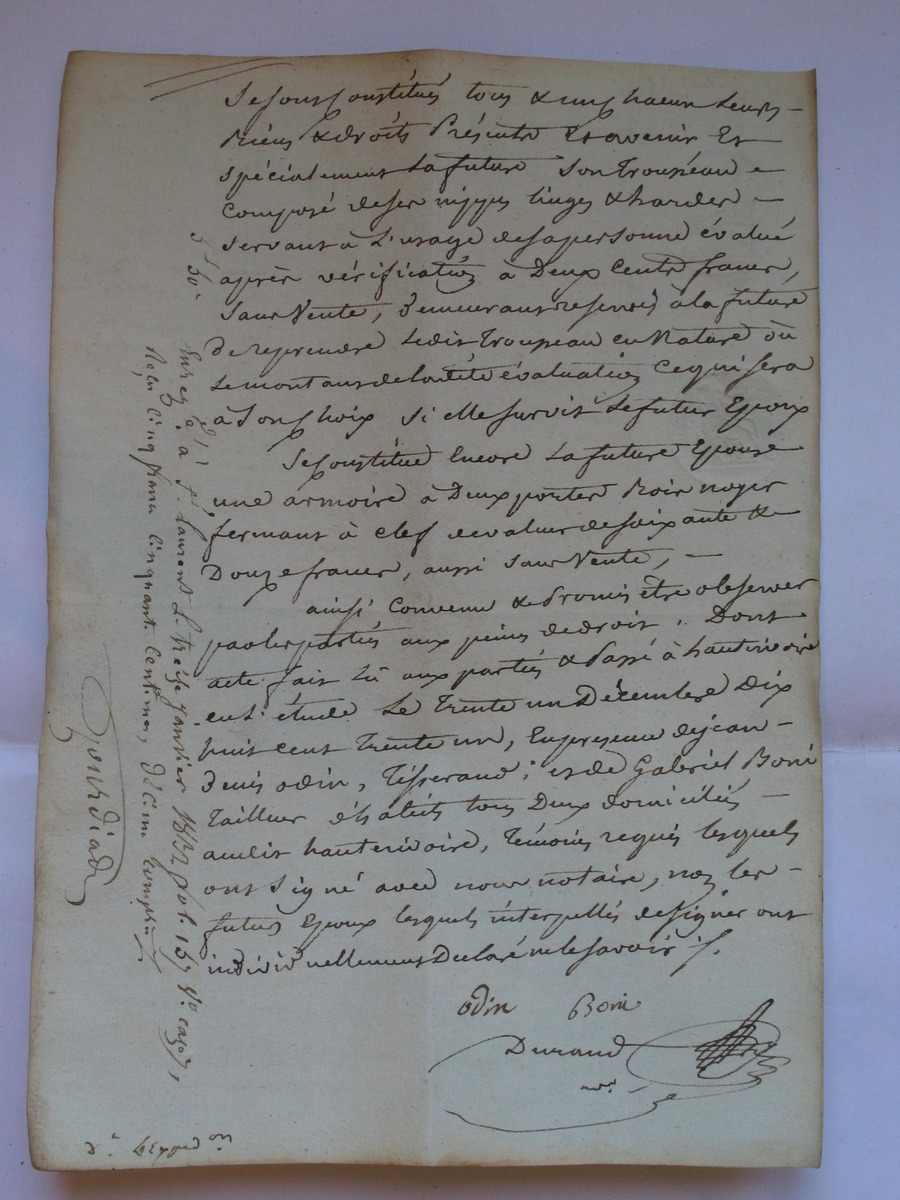 Se sont constitués tous & un chacun leurs
biens & droits présents et avenir et
spécialement la future son trousseau
composé de ses nippes linges & hardes
servant à l'usage de sa personne évalué
après vérification à deux cents francs,
sans vente, demeurant reservé à la future
de reprendre ledit trousseau en nature ou
le montant de ladite évaluation ce qui sera
à son choix si elle survit le futur Epoux
Se constitue encore la future Epouse
une armoire à deux portes bois noyer
fermant à clef de valeur de soixante &
douze francs, aussi sans vente,
ainsi convenu & promis être observer
par les parties aux peines de droit. Dont
acte fait lu aux parties & passé à hauterivoire
en l'étude le trente un Décembre dix
huit cent trente un, En presence de jean
denis odin, Tisserand, et de Gabriel Boni
tailleur d'habits tous deux domiciliés
audit hauterivoire, témoins requis lesquels
ont signé avec nous notaire, non les
futurs Epoux lesquels interpellés de signer ont
individuellement declaré ne le savoir /.
odin Boni
Durand
nre
5f 50c
Enreg. à St Laurent le treize janvier 1832 fol. 157 Vo case
Reçu cinq francs cinquante centimes, décime compris